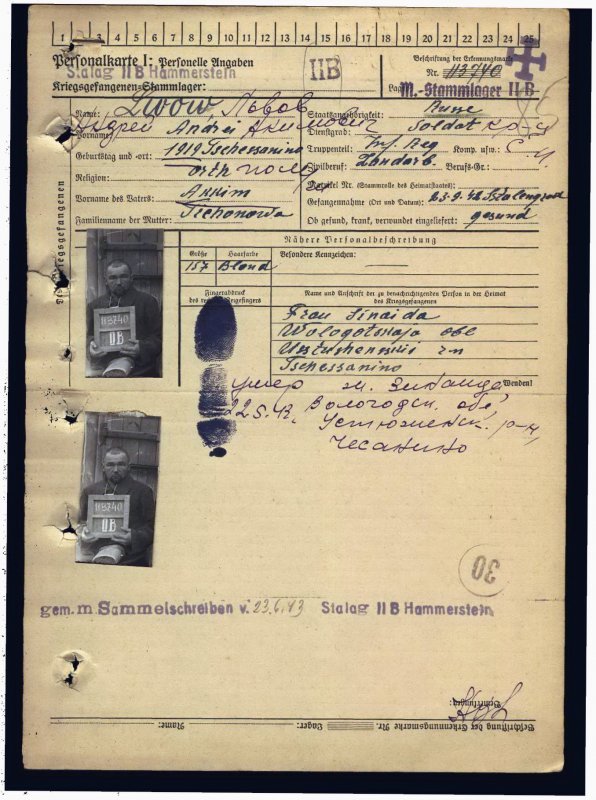 1 2 3 4 5 6 7 8 9 10 11 12 13 14 15 16 17 18 19 20 21 22 23 24 25
Personalkarte I: Personelle Angaben
Stalag II B Hammerstein
Kriegsgefangenen-Stammlager:
IIB
Beschriftung der Erkennungsmarke
Nr. 113740
Lager: M.-Stammlager II B
Name: Lwow, Львов
Vorname: Andrei Андрей Акимович
Geburtstag und -ort: 1919 Tschessanino
Religion: orth.
Vorname des Vaters: Akkim
Familienname der Mutter: Tschonowa
Staatsangehörigkeit: Russe
Dienstgrad: Soldat
Truppenteil: Inf. Reg Komp. usw.:
Zivilberuf: Landarb. Berufs-Gr.:
Matrikel Nr. (Stammrolle des Heimatstaates):
Gefangennahme (Ort und Datum): 23.9.42 Stalengrad
Ob gesund, krank, verwundet eingeliefert: gesund
Des Kriegsgefangenen
Nähere Personalbeschreibung
Größe Haarfarbe Besondere Kennzeichen:
157 Blond —
Fingerabdruck des rechten Zeigefingers
Name und Anschrift der zu benachrichtigenden Person in der Heimat des Kriegsgefangenen
Frau Sinaida
Wologotskaja obl
Ustushenskii rn
Tschessanino
Wenden!
113740
IIB
умер ж. Зинаида
22.5.43. Вологодск. обл,
Устюженск. р-н,
Чесанино
113740
IIB
30
gem. m. Sammelschreiben v. 23.6.43 Stalag II B Hammerstein
Bemerkungen:
Beschriftung der Erkennungsmarke Nr. Lager: Name: